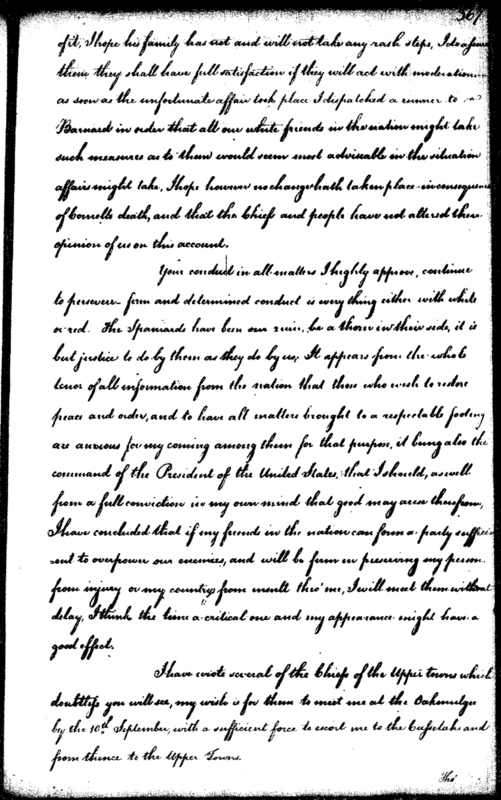 367
of it, I hope his family has not and will not take any rash steps, I do assure
them they shall have full satisfaction if they will act with moderation
as soon as the unfortunate affair took place I dispatched a runner to
Barnard in order that all our white friends in the nation might take
such measures as to them would seem most adviseable in the situation
affairs might take, I hope however no change hath taken place in consequence
of Cornells death, and that the Chiefs and people have not altered their
opinion of us on this account.
Your conduct in all matters I highly approve, continue
to persevere firm and determined conduct is every thing either with white
or red. The Spaniards have been our ruin, be a thorn in their side, it is
but justice to do by them as they do by us; It appears from the whole
tenor of all information from the nation that those who wish to restore
peace and order, and to have all matters brought to a respectable footing
are anxious for my coming among them for that purpose, it being also the
command of the President of the United States, that I should, as well
from a full conviction in my own mind that good may arise therefrom,
I have concluded that if my friends in the nation can form a party suffici
ent to overpower our enemies, and will be firm in preserving my person
from injury or my country from insult thro' me, I will meet them without
delay, I think the time a critical one and my appearance might have a
good effect.
I have wrote several of the Chiefs of the Upper towns which
doubtless you will see, my wish is for them to meet me at the Oakmulge
by the 10th September, with a sufficient force to escort me to the Cussetahs and
from thence to the Upper Towns.
Tho'